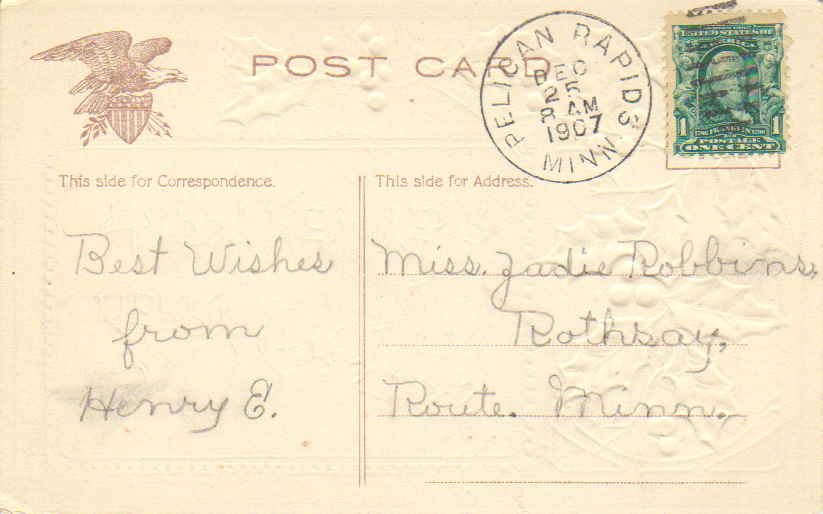 POST CARD
PELICAN RAPIDS
DEC
25
8 AM
1907
MINN
1
POSTAGE
ONE CENT
This side for Correspondence.
This side for Address.
Best Wishes
from
Henry E.
Miss. Zadie Robbins,
Rothsay,
Route. Minn.